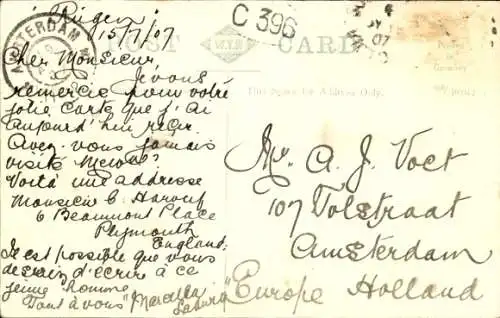 15/7/07
C 396
AMSTERDAM
POST CARD
Cher Monsieur
Je vous
remercie pour votre
jolie carte que j'ai
aujourd'hui
Avez-vous jamais
visité
This Space for Address Only.
Voilà une adresse
Monsieur
6 Beaumont Place
Plymouth
England.
Il est possible que vous
d'écrire à ce
jeune homme
Tout à vous
Mr. A. J. Voet
107 Tolstraat
Amsterdam
Europe Holland